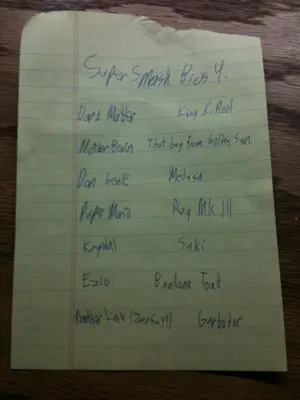 Super Smash Bros 4.
Dark Matter King K. Rool
Mother Brain That guy from Golden Sun
Dan
Paper Mario Ray Mk III
Medusa
Krystal Saki
Ezio Bandana
Another Link (Zero Suit?)